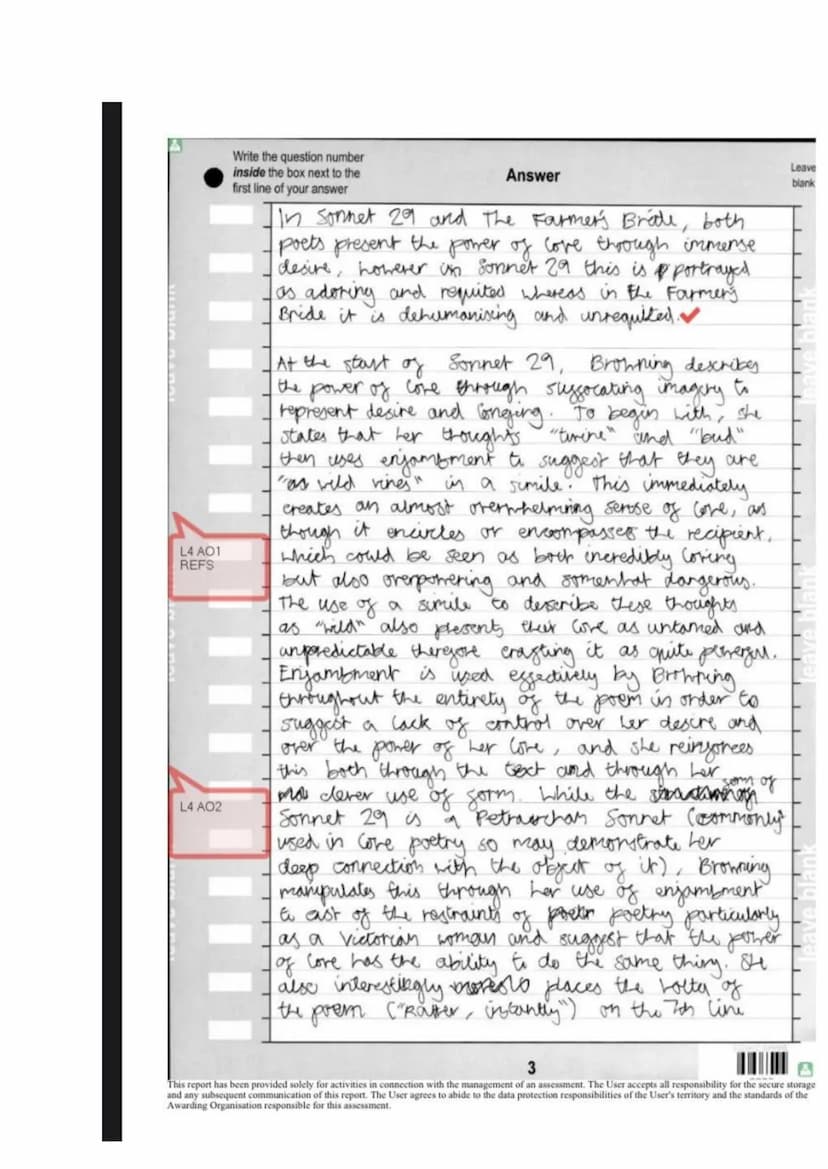 Write the question number
inside the box next to the
first line of your answer
Answer
Leave
blank
In Sonnet 29 and The Farmer's Bride, both
poets present the power of love through immense
desire, however in Sonnet 29 this is portrayed
as adoring and requited whereas in the Farmer's
Bride it is dehumanising and unrequited.
At the start of Sonnet 29, Browning describes
the power of love through suffocating imagery to
represent desire and longing. To begin with, she
states that her thoughts "twine" and "bud"
then uses enjambment to suggest that they are
"as wild vines" in a simile. This immediately
creates an almost overwhelming sense of love, as
though it encircles or encompasses the recipient,
L4 AO1
REFS
which could be seen as both incredibly loving
but also overpowering and somewhat dangerous.
The use of a simile to describe these thoughts
as "wild" also presents their love as untamed and
unpredictable therefore crafting it as quite powerful.
Enjambment is used effectively by Browning
throughout the entirety of the poem in order to
suggest a lack of control over her desire and
over the power of her love, and she reinforces
this both through the text and through her
clever use of form. While the form of
L4 AO2
Sonnet 29 is a Petrarchan Sonnet (commonly
used in love poetry so may demonstrate her
deep connection with the object of it), Browning
manipulates this through her use of enjambment
to cast of the restraints of poetry particularly
as a Victorian woman and suggest that the power
of love has the ability to do the same thing. She
also interestingly places the volta of
the poem ("Rather, instantly") on the 7th line
3
This report has been provided solely for activities in connection with the management of an assessment. The User accepts all responsibility for the secure storage
and any subsequent communication of this report. The User agrees to abide to the data protection responsibilities of the User's territory and the standards of the
Awarding Organisation responsible for this assessment.